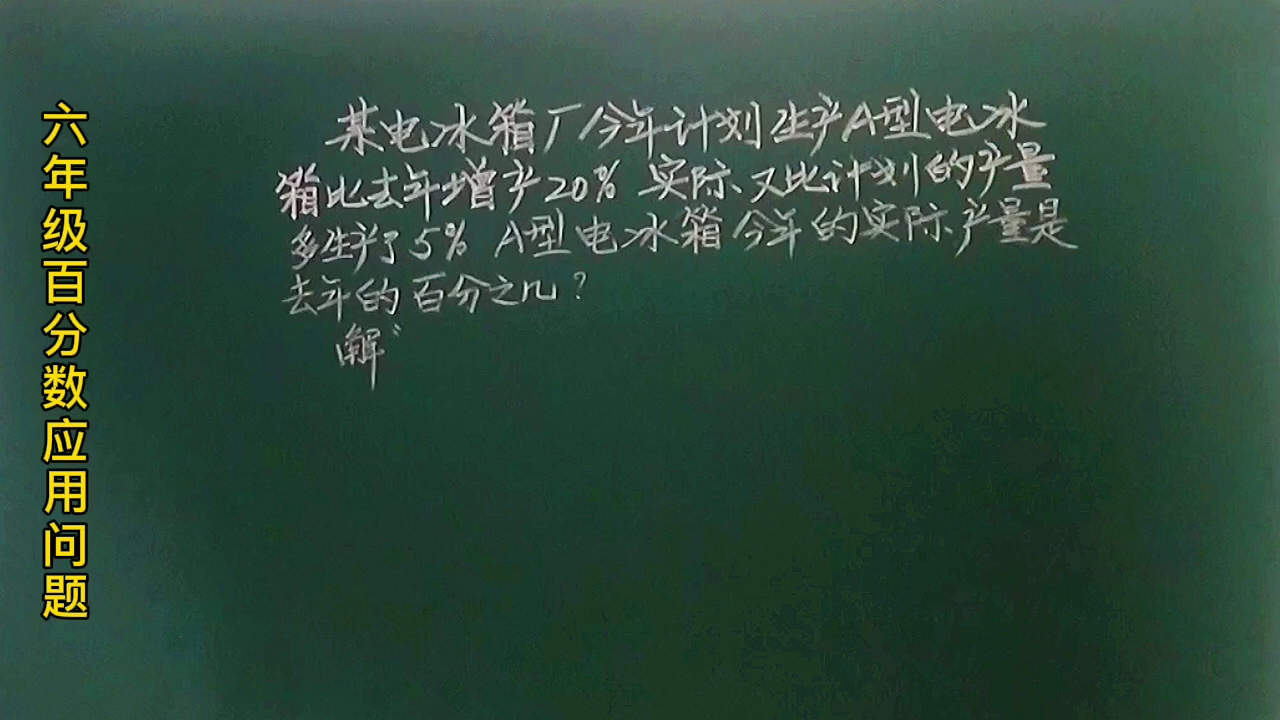 六年级百分数应用问题
某电冰箱厂今年计划生产A型电冰
箱比去年增产20% 实际又比计划的产量
多生产了5% A型电冰箱今年的实际产量是
去年的百分之几?
解: